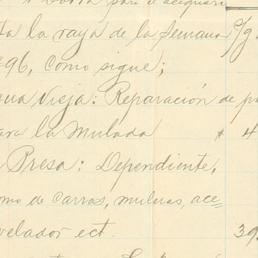 para el acequari
ta la raya de la semana
896, como sigue;
gua Vieja: Reparación de p
ara la Mulada $ 4
Presa: Dependiente,
omo de carros, muleras, ace-
velador ect. 39